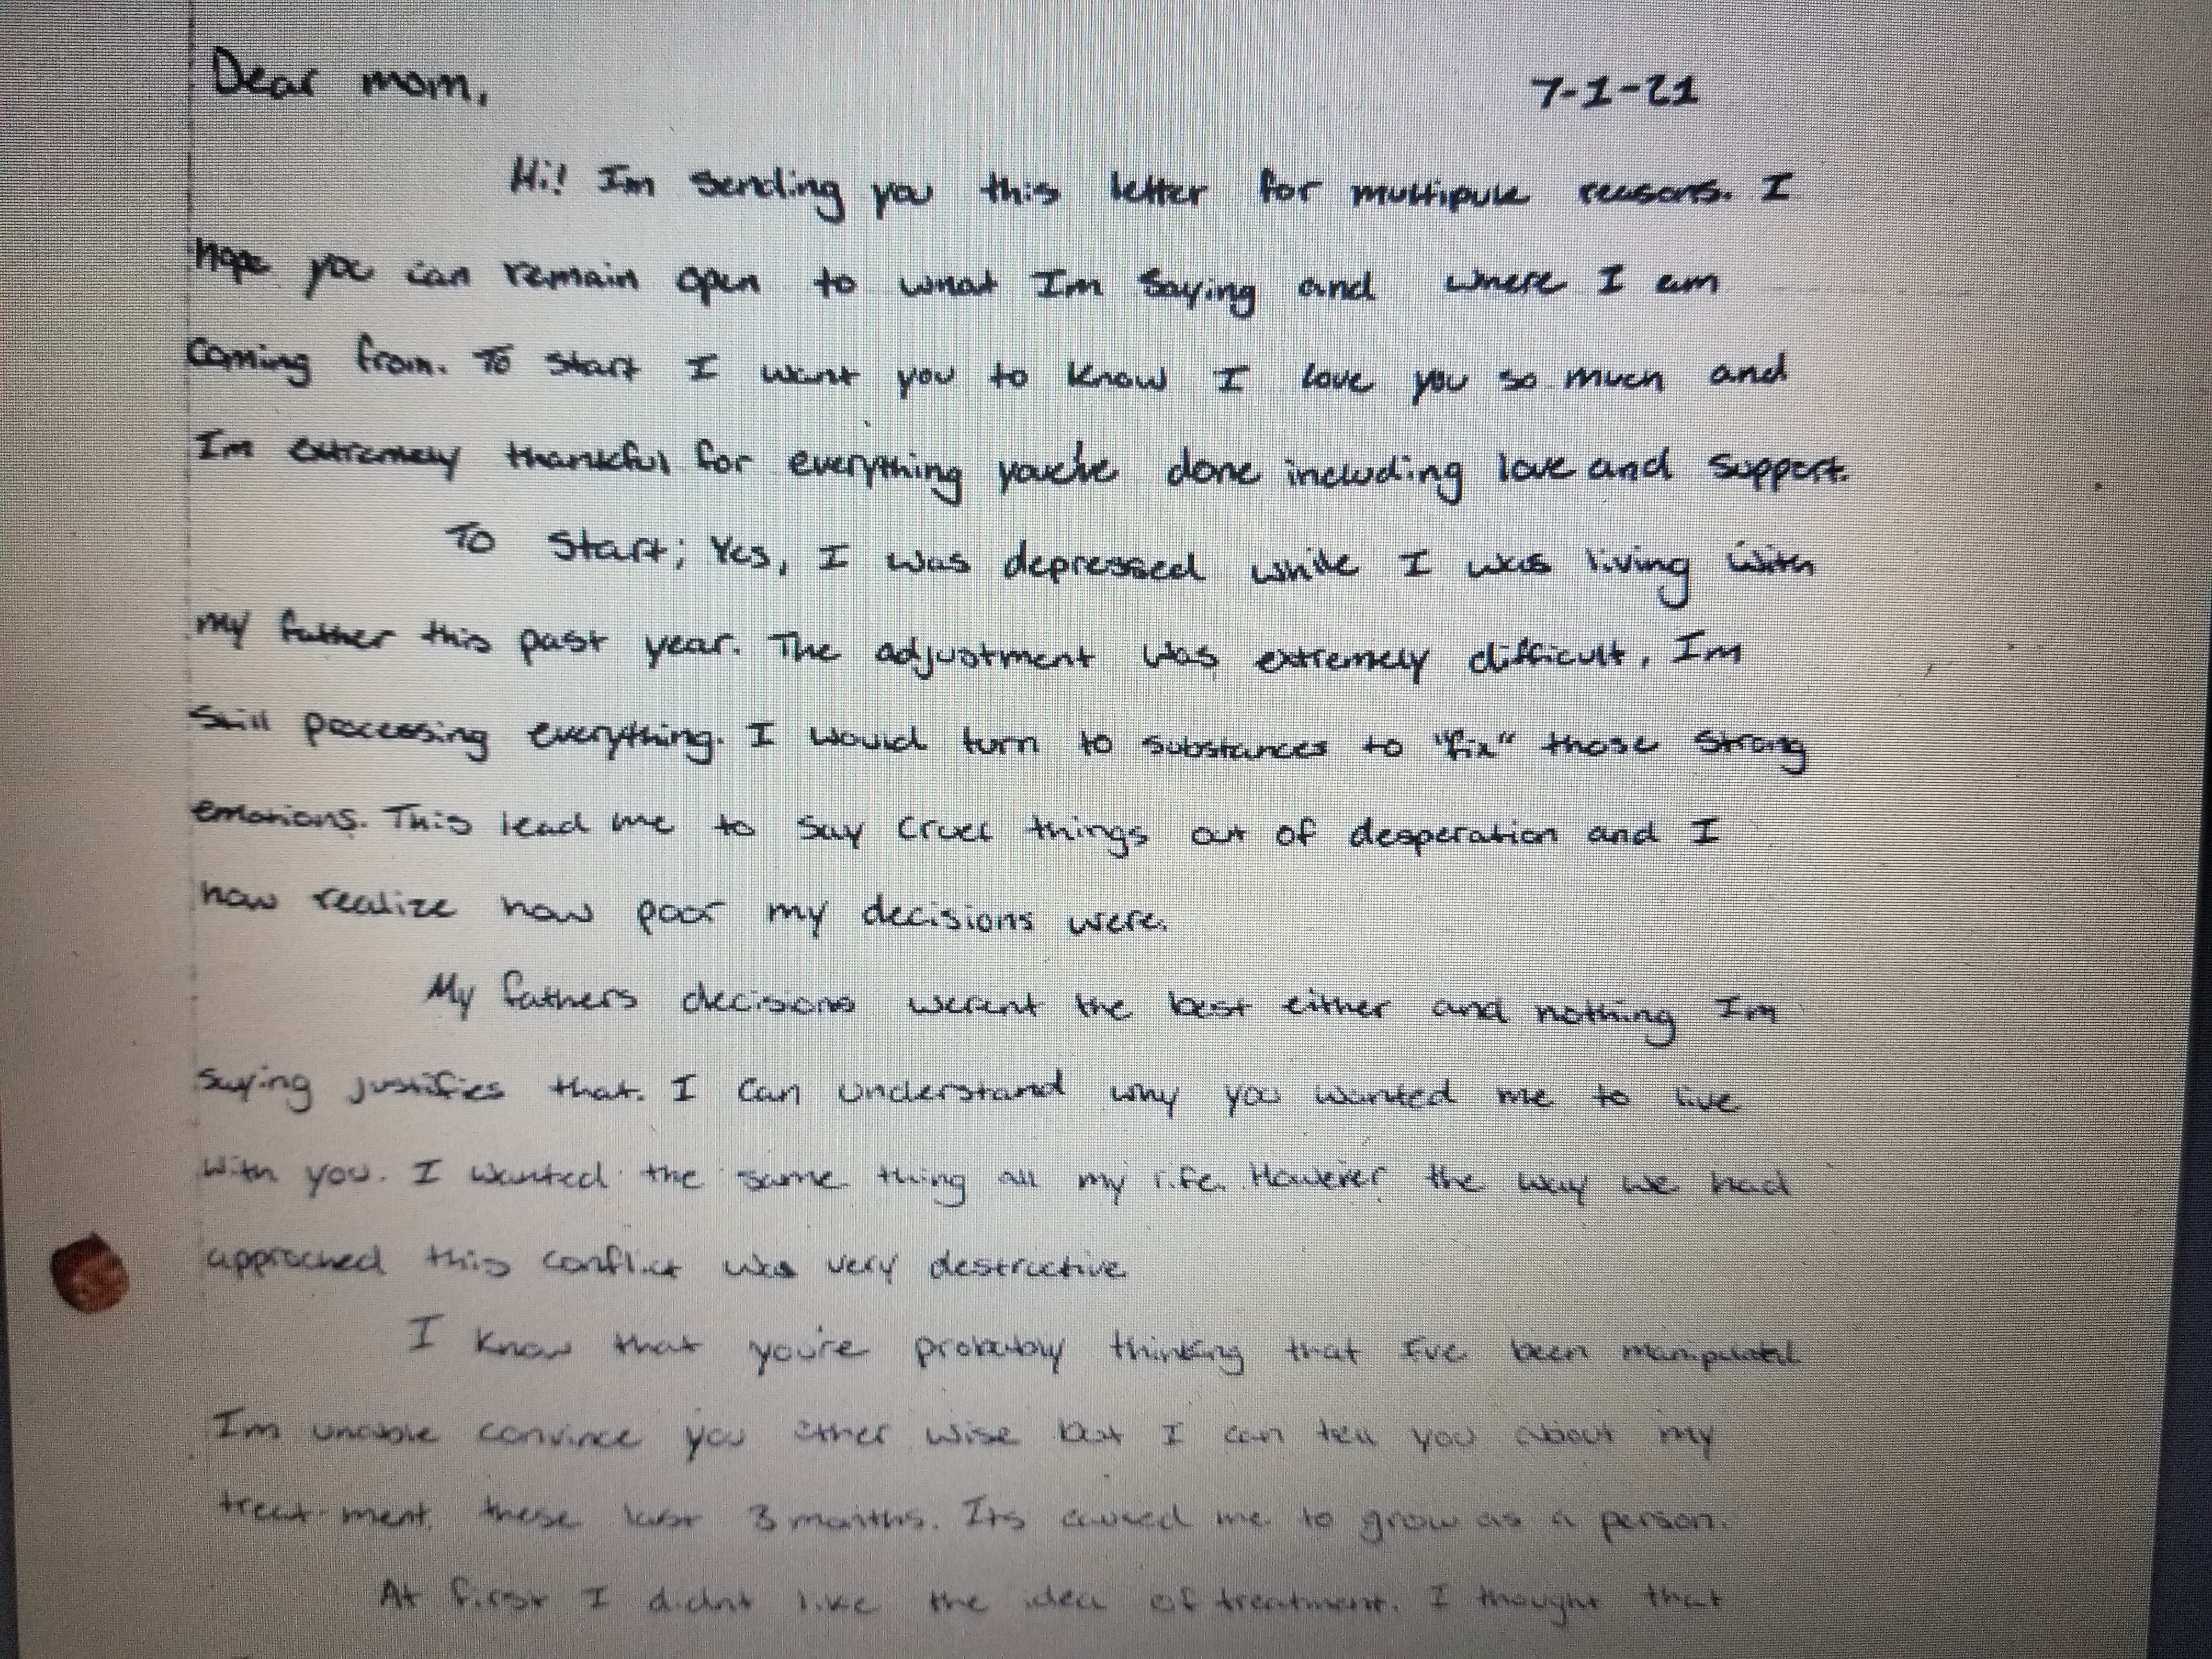 Dear mom,
7-1-21
Hi! Im sending you this letter for multipule reasons. I
hope you can remain open to what Im saying and where I am
coming from. To start I want you to know I love you so much and
Im extremely thankful for everything you've done including love and support.
To start; Yes, I was depressed while I was living with
my father this past year. The adjustment was extremely difficult, Im
still processing everything. I would turn to substances to "fix" those strong
emotions. This lead me to say cruel things out of desperation and I
now realize how poor my decisions were.
My fathers decisions werent the best either and nothing Im
saying justifies that. I can understand why you wanted me to live
with you. I wanted the same thing all my life. However the way we had
approched this conflict was very destructive
I know that you're probably thinking that I've been
Im unable convince you other wise but I can tell you about my
treat-ment, these last 3 months. Its me to grow as a person.
At first I didnt like the idea of treatment. I thought that